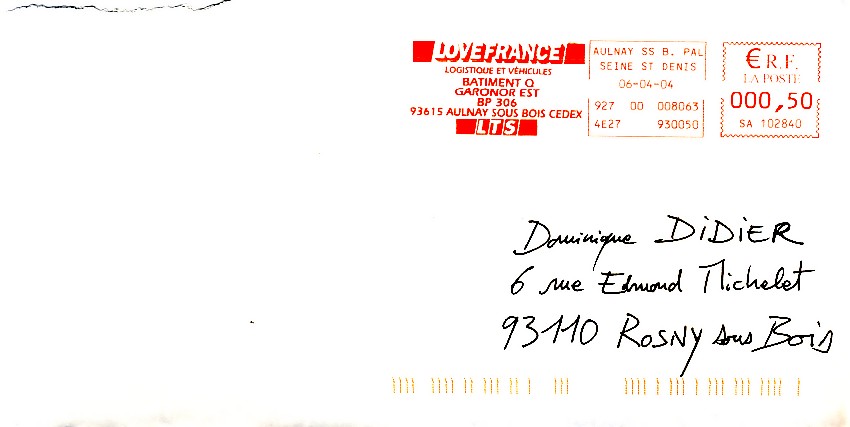 LOVEFRANCE
LOGISTIQUE ET VÉHICULES
BATIMENT Q
GARONOR EST
BP 306
93615 AULNAY SOUS BOIS CEDEX
LTS
AULNAY SS B. PAL
SEINE ST DENIS
06-04-04
927 00 008063
4E27 930050
€ R.F.
LA POSTE
000,50
SA 102840
Dominique DIDIER
6 rue Edmond Michelet
93110 ROSNY sous Bois